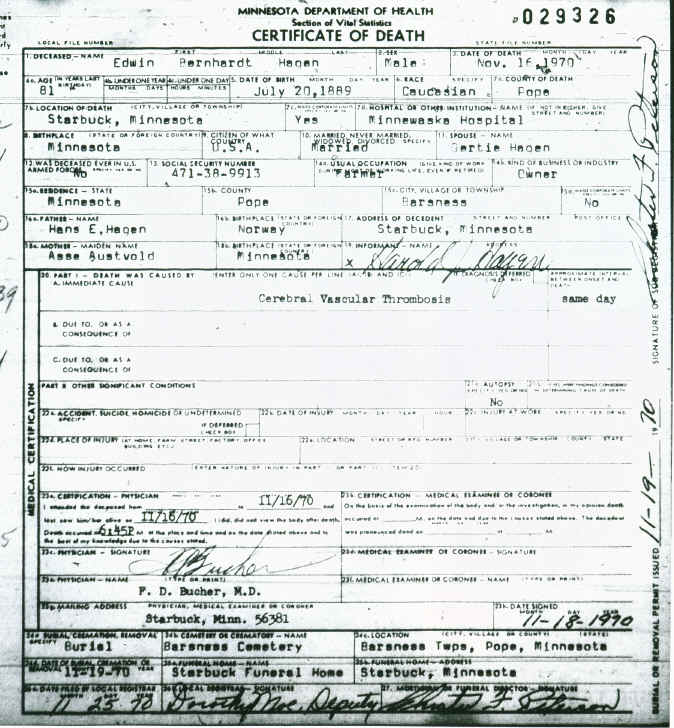 MINNESOTA DEPARTMENT OF HEALTH
Section of Vital Statistics
CERTIFICATE OF DEATH
029326
LOCAL FILE NUMBER
STATE FILE NUMBER
1. DECEASED – NAME FIRST MIDDLE LAST
Edwin Bernhardt Hagen
2. SEX
Male
3. DATE OF DEATH MONTH DAY YEAR
Nov. 16, 1970
4a. AGE (IN YEARS LAST BIRTHDAY)
81
4b. UNDER ONE YEAR
MONTHS DAYS
4c. UNDER ONE DAY
HOURS MINUTES
5. DATE OF BIRTH MONTH DAY YEAR
July 20, 1889
6. RACE SPECIFY
Caucasian
7a. COUNTY OF DEATH
Pope
7b. LOCATION OF DEATH (CITY, VILLAGE OR TOWNSHIP)
Starbuck, Minnesota
Yes
7d. HOSPITAL OR OTHER INSTITUTION – NAME (IF NOT IN EITHER, GIVE STREET AND NUMBER)
Minnewaska Hospital
8. BIRTHPLACE (STATE OR FOREIGN COUNTRY)
Minnesota
9. CITIZEN OF WHAT COUNTRY
U.S.A.
10. MARRIED, NEVER MARRIED, WIDOWED, DIVORCED (SPECIFY)
Married
11. SPOUSE – NAME
Gertie Hagen
12. WAS DECEASED EVER IN U.S. ARMED FORCES
No
13. SOCIAL SECURITY NUMBER
471-38-9913
14a. USUAL OCCUPATION (GIVE KIND OF WORK DURING MOST OF WORKING LIFE, EVEN IF RETIRED)
Farmer
14b. KIND OF BUSINESS OR INDUSTRY
Owner
15a. RESIDENCE – STATE
Minnesota
15b. COUNTY
Pope
15c. CITY, VILLAGE OR TOWNSHIP
Barsness
No
16a. FATHER – NAME
Hans E. Hagen
16b. BIRTHPLACE (STATE OR FOREIGN COUNTRY)
Norway
17. ADDRESS OF DECEDENT STREET AND NUMBER POST OFFICE
Starbuck, Minnesota
18a. MOTHER – MAIDEN NAME
Aase Austvold
18b. BIRTHPLACE (STATE OR FOREIGN COUNTRY)
Minnesota
19. INFORMANT – NAME ADDRESS
x Harold J. Hagen
20. PART I – DEATH WAS CAUSED BY
A. IMMEDIATE CAUSE
IF DIAGNOSIS DEFERRED CHECK BOX
APPROXIMATE INTERVAL BETWEEN ONSET AND DEATH
Cerebral Vascular Thrombosis
same day
B. DUE TO, OR AS A CONSEQUENCE OF
C. DUE TO, OR AS A CONSEQUENCE OF
PART II OTHER SIGNIFICANT CONDITIONS
21a. AUTOPSY
No
22a. ACCIDENT, SUICIDE, HOMICIDE OR UNDETERMINED
SPECIFY
IF DEFERRED CHECK BOX
22b. DATE OF INJURY MONTH DAY YEAR HOUR
22c. INJURY AT WORK SPECIFY YES OR NO
22d. PLACE OF INJURY (AT HOME, FARM, STREET, FACTORY, OFFICE BUILDING, ETC.)
22e. LOCATION STREET OR RFD NUMBER CITY, VILLAGE OR TOWNSHIP COUNTY STATE
22f. HOW INJURY OCCURRED
MEDICAL CERTIFICATION
23a. CERTIFICATION – PHYSICIAN
I attended the deceased from to 11/16/70
last saw him/her alive on 11/16/70 I did, did not view the body after death.
Death occurred at 6:45P M. at the place and time and on the date stated above and to the best of my knowledge due to the causes stated.
23b. CERTIFICATION – MEDICAL EXAMINER OR CORONER
On the basis of the examination of the body and/or the investigation, in my opinion death occurred at M. on the date and due to the causes stated above. The decedent was pronounced dead on at M.
23c. PHYSICIAN – SIGNATURE
Bucher
23d. MEDICAL EXAMINER OR CORONER – SIGNATURE
23e. PHYSICIAN – NAME (TYPE OR PRINT)
F. D. Bucher, M.D.
23f. MEDICAL EXAMINER OR CORONER – NAME (TYPE OR PRINT)
23g. MAILING ADDRESS PHYSICIAN, MEDICAL EXAMINER OR CORONER
Starbuck, Minn. 56381
23h. DATE SIGNED MONTH DAY YEAR
11-18-1970
24a. BURIAL, CREMATION, REMOVAL
SPECIFY
Burial
24b. CEMETERY OR CREMATORY – NAME
Barsness Cemetery
24c. LOCATION (CITY, VILLAGE OR COUNTY) (STATE)
Barsness Twps, Pope, Minnesota
24d. DATE OF BURIAL, CREMATION OR REMOVAL MONTH DAY YEAR
11-19-70
25a. FUNERAL HOME – NAME
Starbuck Funeral Home
25b. FUNERAL HOME – ADDRESS
Starbuck, Minnesota
26a. DATE FILED BY LOCAL REGISTRAR
MONTH DAY YEAR
11 25 70
26b. LOCAL REGISTRAR – SIGNATURE
Dorothy Noe, Deputy
27. MORTICIAN OR FUNERAL DIRECTOR – SIGNATURE
Peterson
BURIAL OR REMOVAL PERMIT ISSUED 11-19- 1970
Peterson